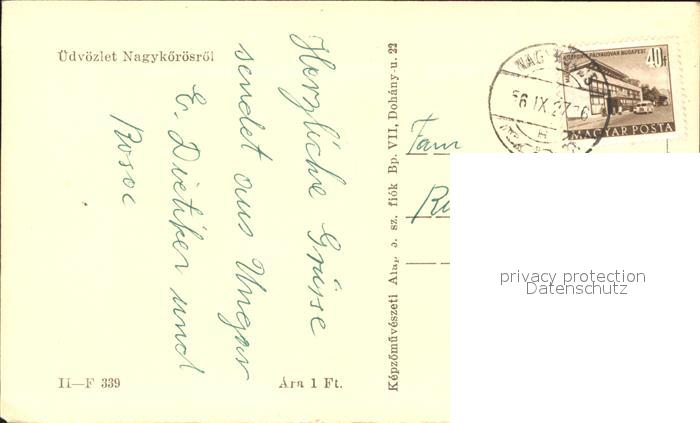 Üdvözlet Nagykőrösről
Herzliche Grüsse
sendet aus Ungarn
E. Dietiker und
II—F 339
Ára 1 Ft.
Képzőművészeti Alap sz. fiók Bp. VII, Dohány-u. 22
Fam
40f
MAGYAR POSTA
56 IX. 27
privacy protection
Datenschutz